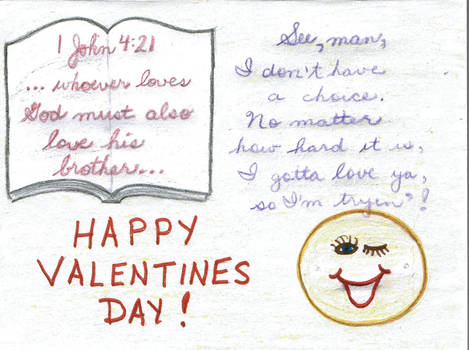 1 John 4:21
... whoever loves
God must also
love his
brother...
See, man,
I don't have
a choice.
No matter
how hard it is,
I gotta love ya,
so I'm tryin'!
HAPPY
VALENTINES
DAY!